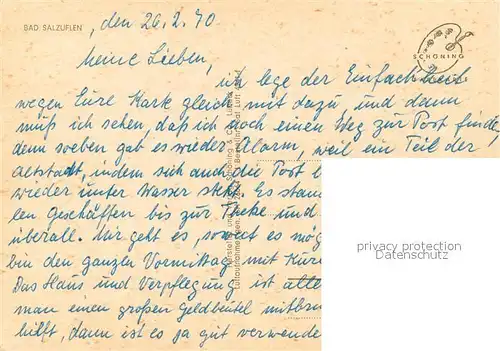 BAD SALZUFLEN, den 26.2.70
SCHÖNING
Meine Lieben,
ich lege der Einfachheit
wegen Eure Karte gleich mit dazu, und dann
muß ich sehen, daß ich noch einen Weg zur Post finde,
denn soeben gab es wieder Alarm, weil ein Teil der
Altstadt, in dem sich auch die Post b
wieder unter Wasser steht. Es stan
len Geschäften bis zur Theke und
überall. Mir geht es, soweit es mög
bin den ganzen Vormittag mit Kur
Das Haus und Verpflegung ist alle
man einen großen Geldbeutel mitbru
hilft, dann ist es ja gut verwende
privacy protection
Datenschutz